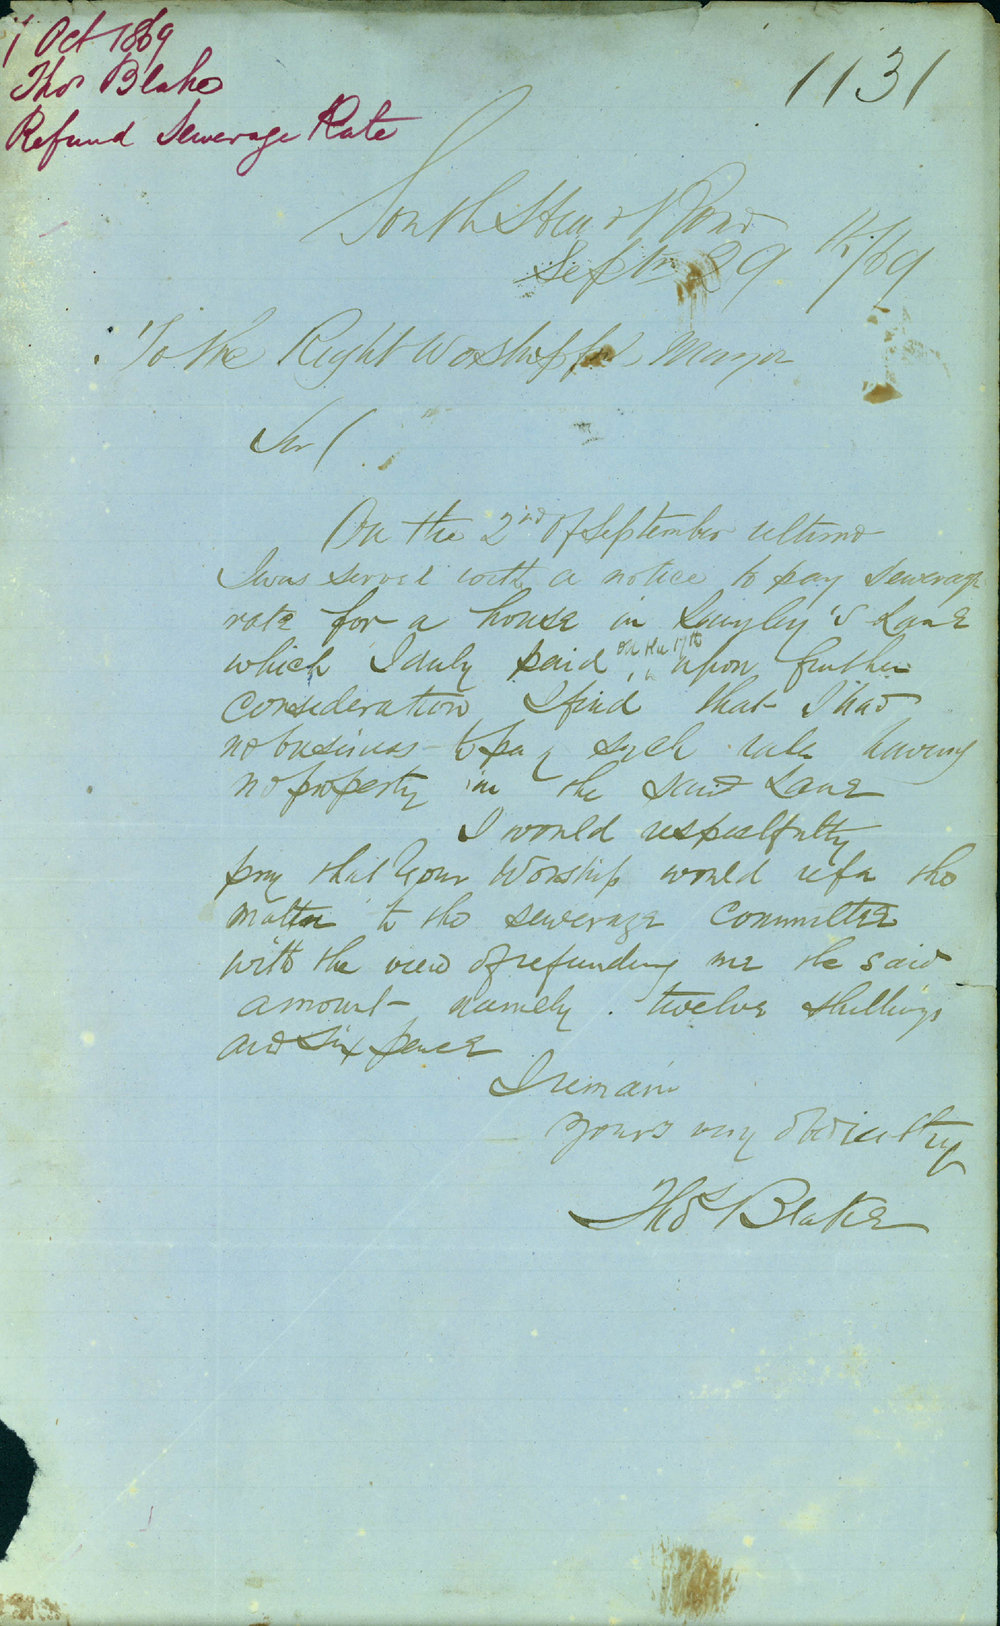 1 Oct 1869
Thos Blake
Refund Sewerage Rate
1131
South Head Road
Septr 29th/69
To the Right Worshipful Mayor
Sir
On the 2nd of September ultimo
I was served with a notice to pay sewerage
rate for a house in Lane
which I duly paid on the 17th upon further
consideration I find that I had
no business to pay such rate having
no property in the said Lane
I would respectfully
pray that Your Worship would refer the
matter to the sewerage committee
with the view of refunding me the said
amount namely twelve shillings
and six pence
I remain
Yours very obediently
Thos Blake